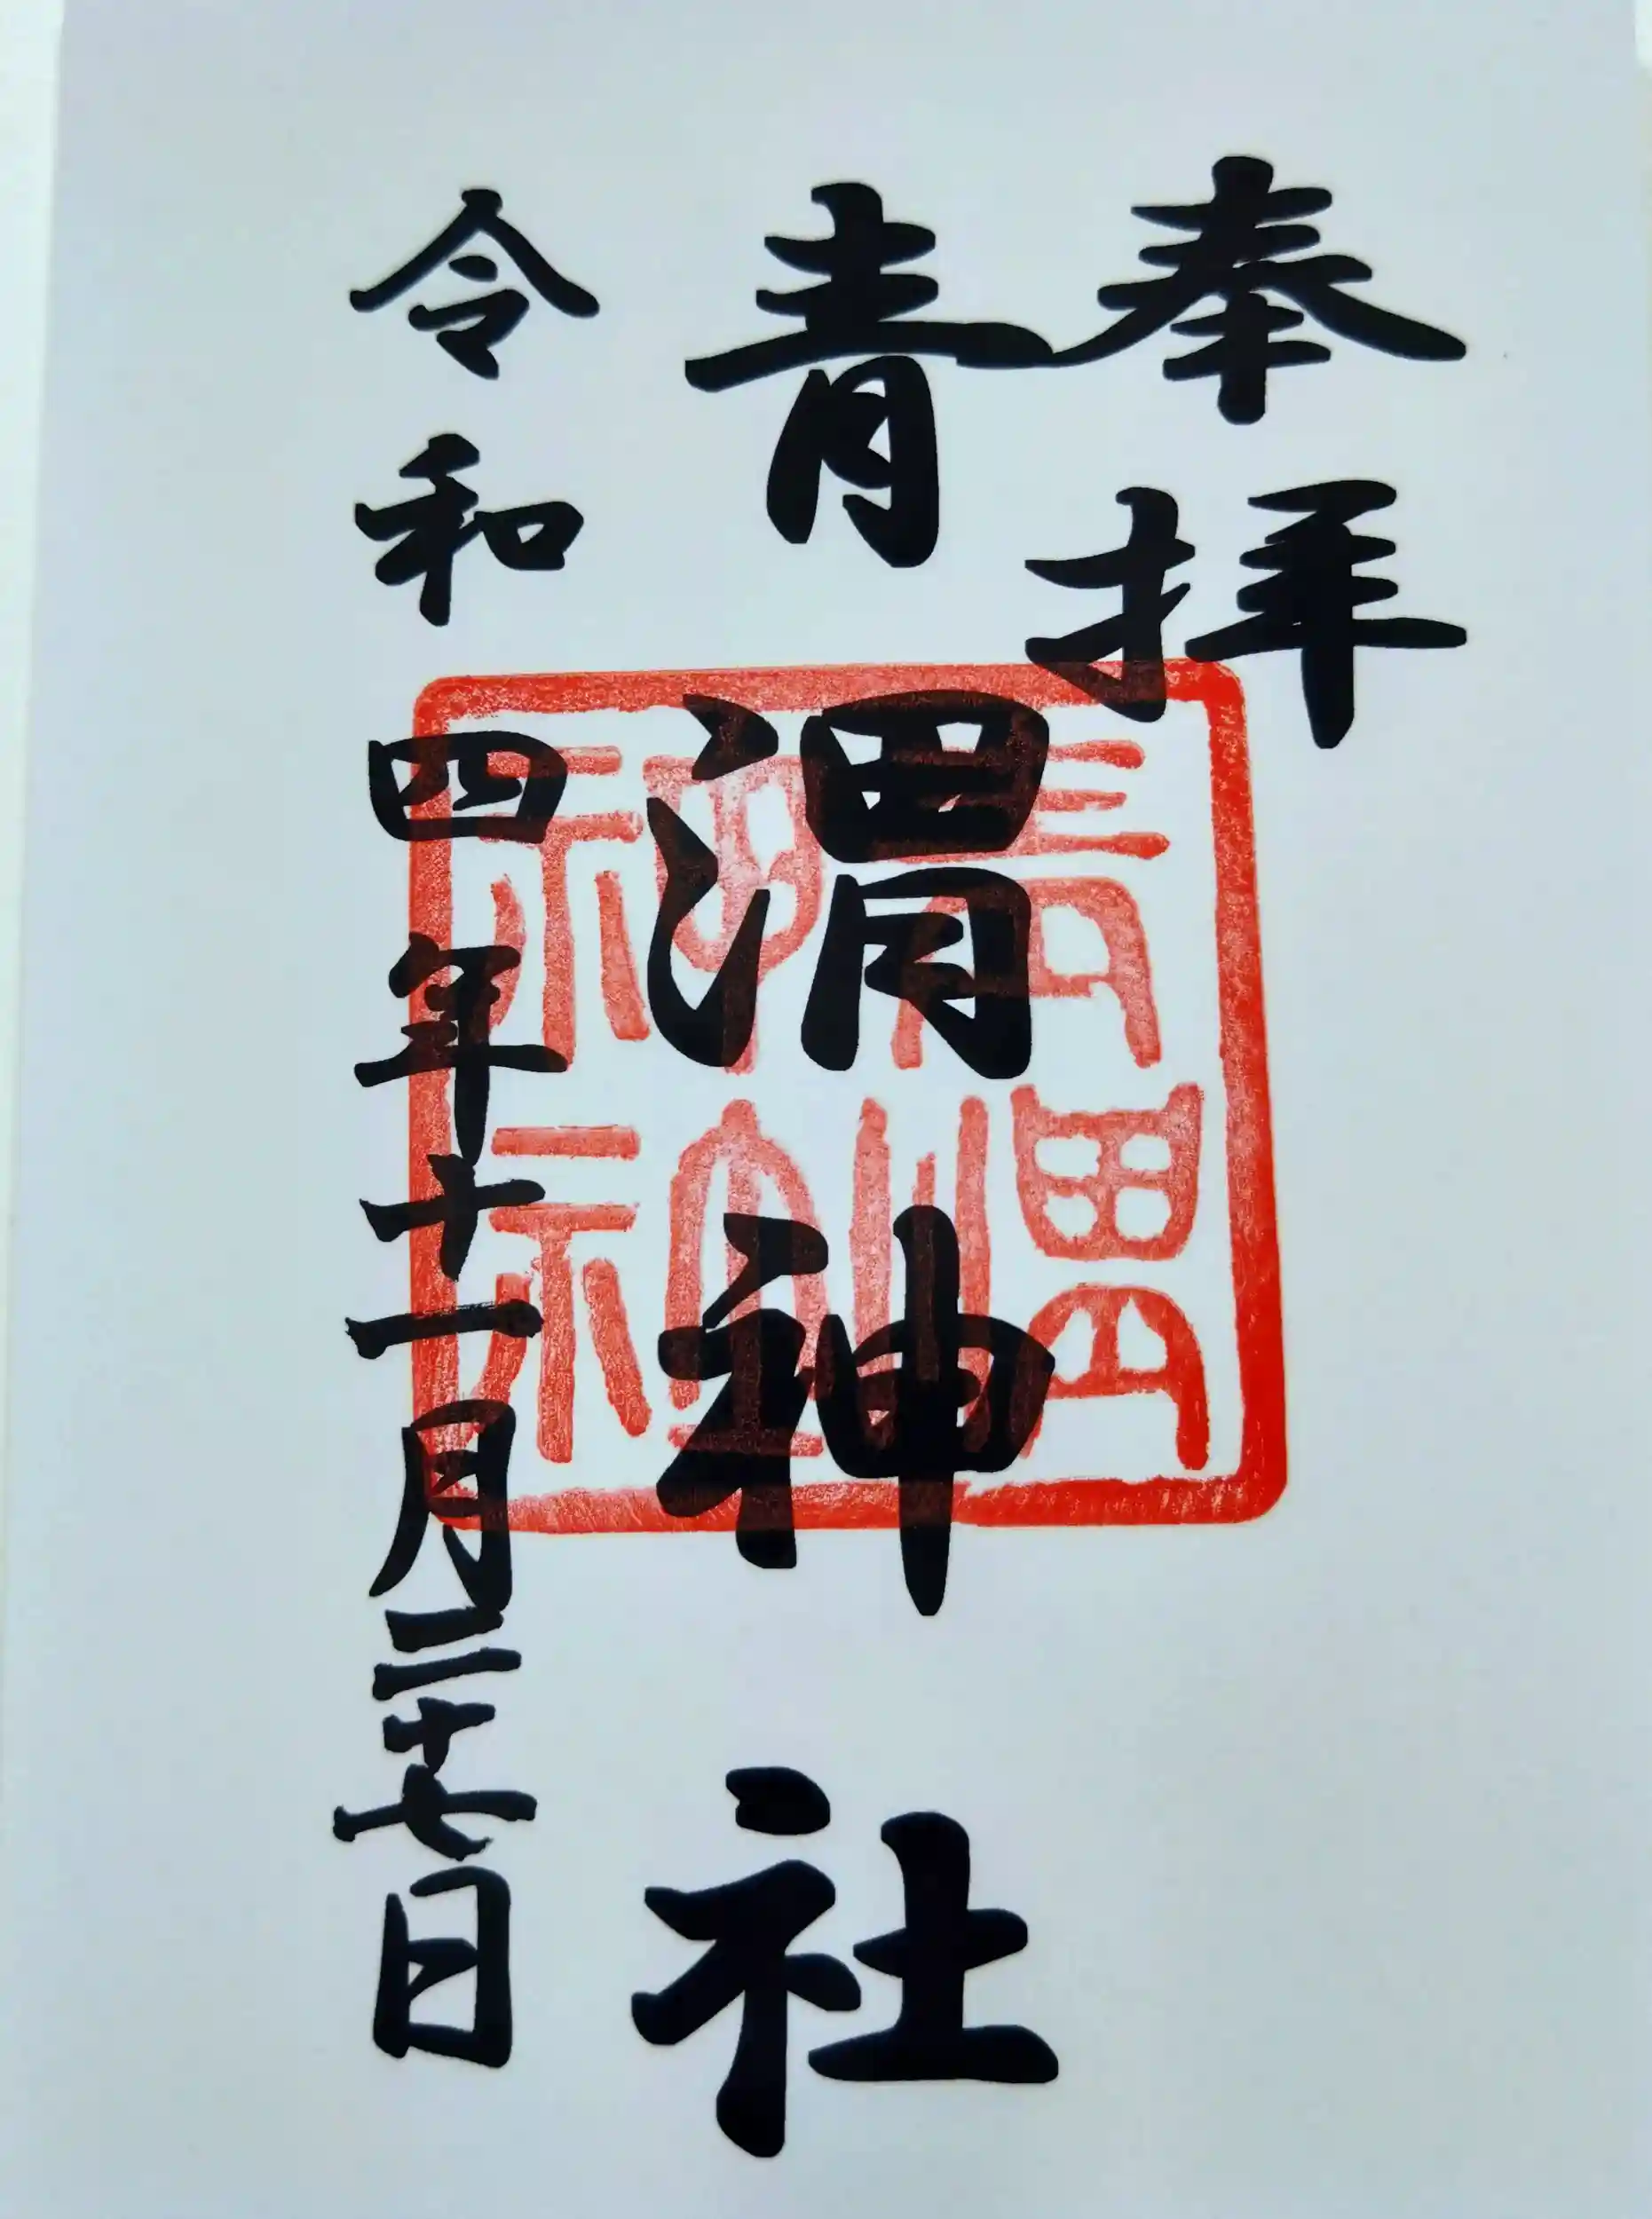 奉拝
青渭神社
令和四年十一月二十七日
青渭
神社